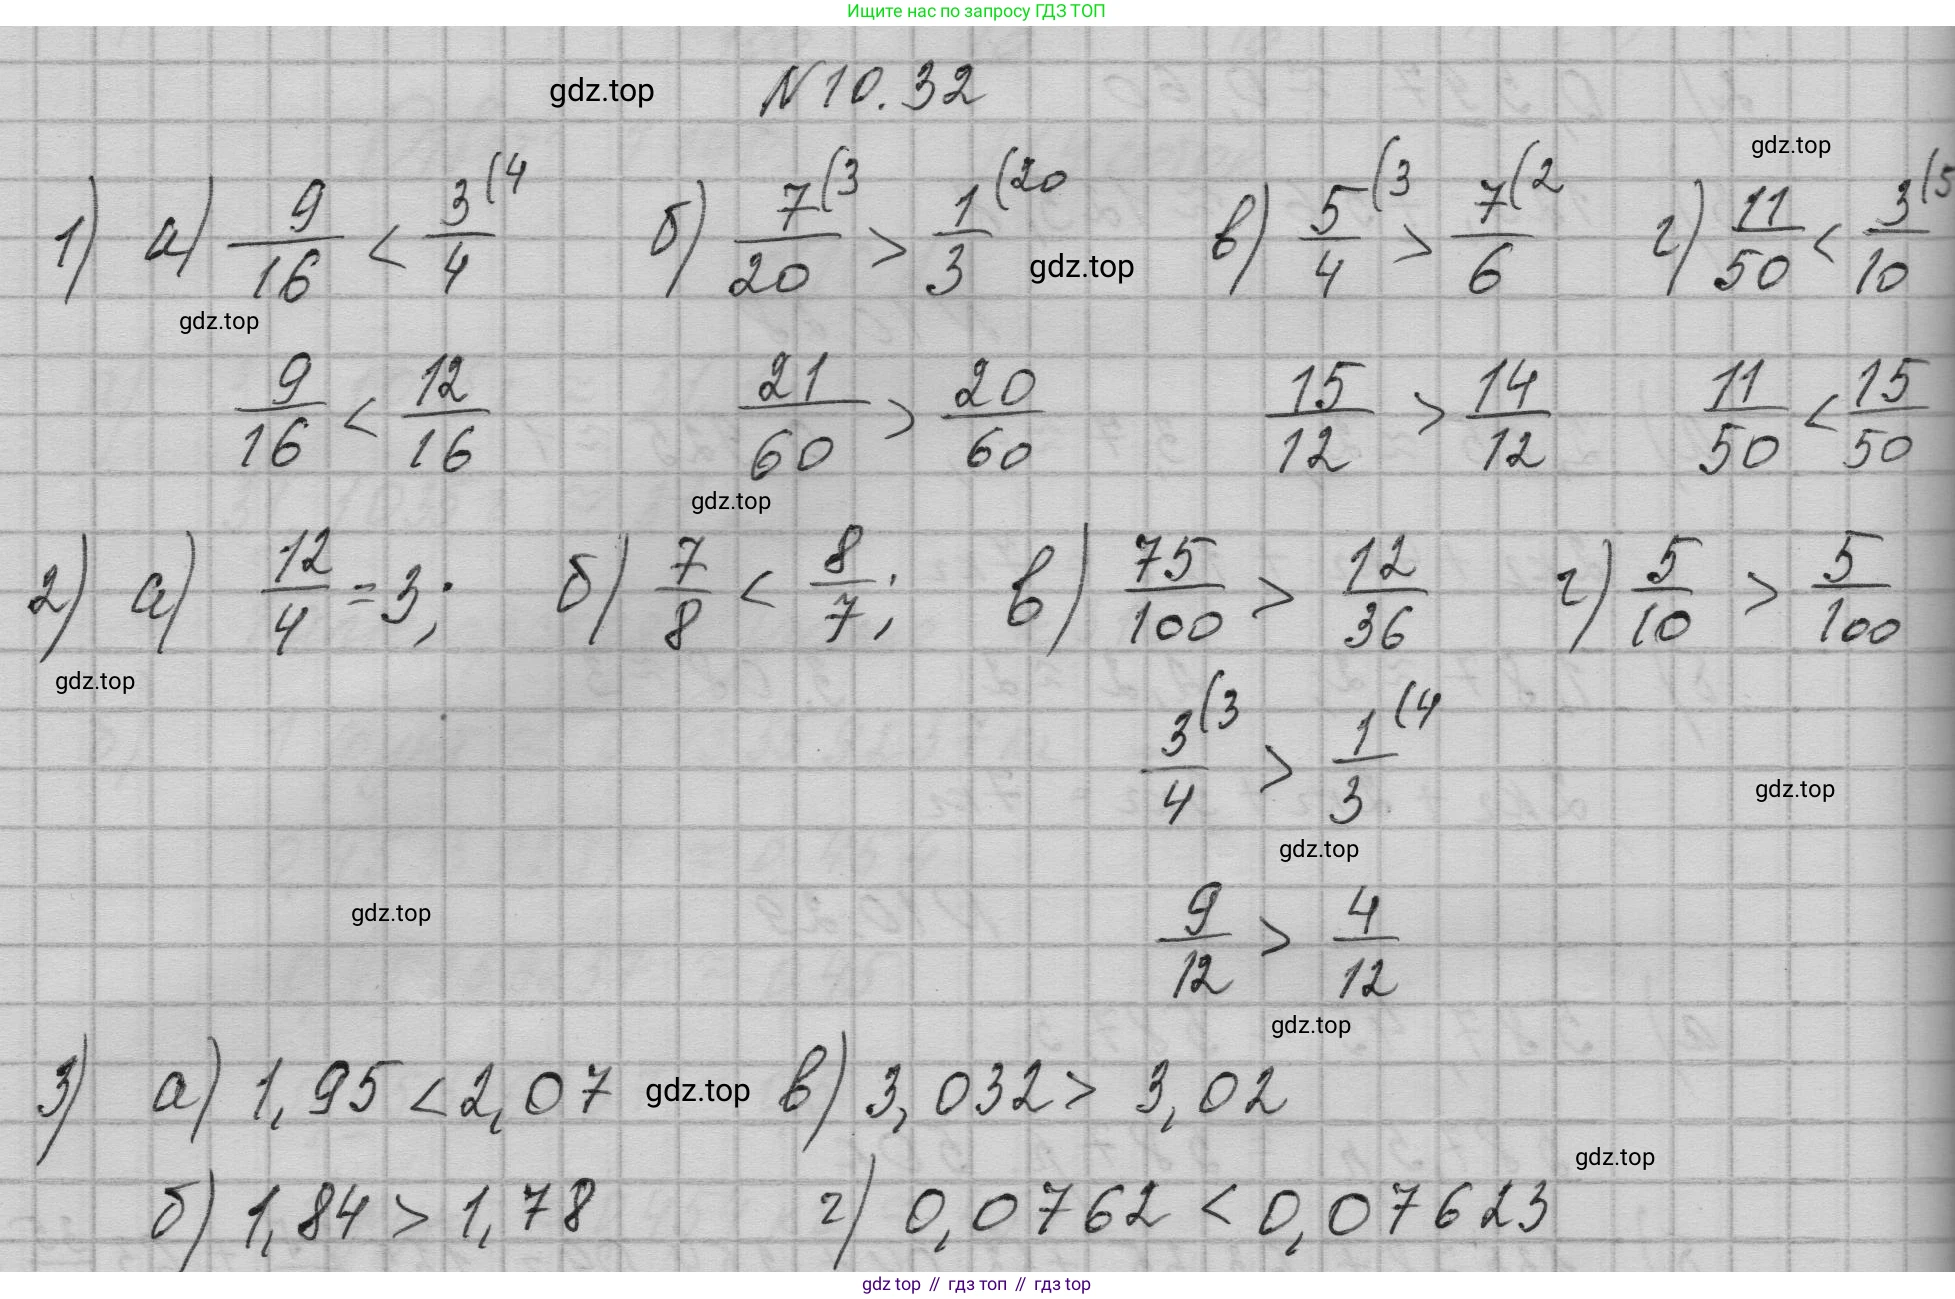 Ищите нас по запросу ГДЗ ТОП
gdz.top N 10.32
gdz.top
1) а) 9/16 < 3(4/4 б) 7(3/20 > 1(20/3 gdz.top в) 5(3/4 > 7(2/6 г) 11/50 < 3(5/10
gdz.top
9/16 < 12/16 21/60 > 20/60 15/12 > 14/12 11/50 < 15/50
gdz.top
2) а) 12/4 = 3; б) 7/8 < 8/7; в) 75/100 > 12/36 г) 5/10 > 5/100
gdz.top
3(3/4 > 1(4/3
gdz.top
gdz.top
gdz.top
9/12 > 4/12
gdz.top
3) а) 1,95 < 2,07 gdz.top в) 3,032 > 3,02
gdz.top
б) 1,84 > 1,78 г) 0,0762 < 0,07623
gdz top // гдз топ // гдз top